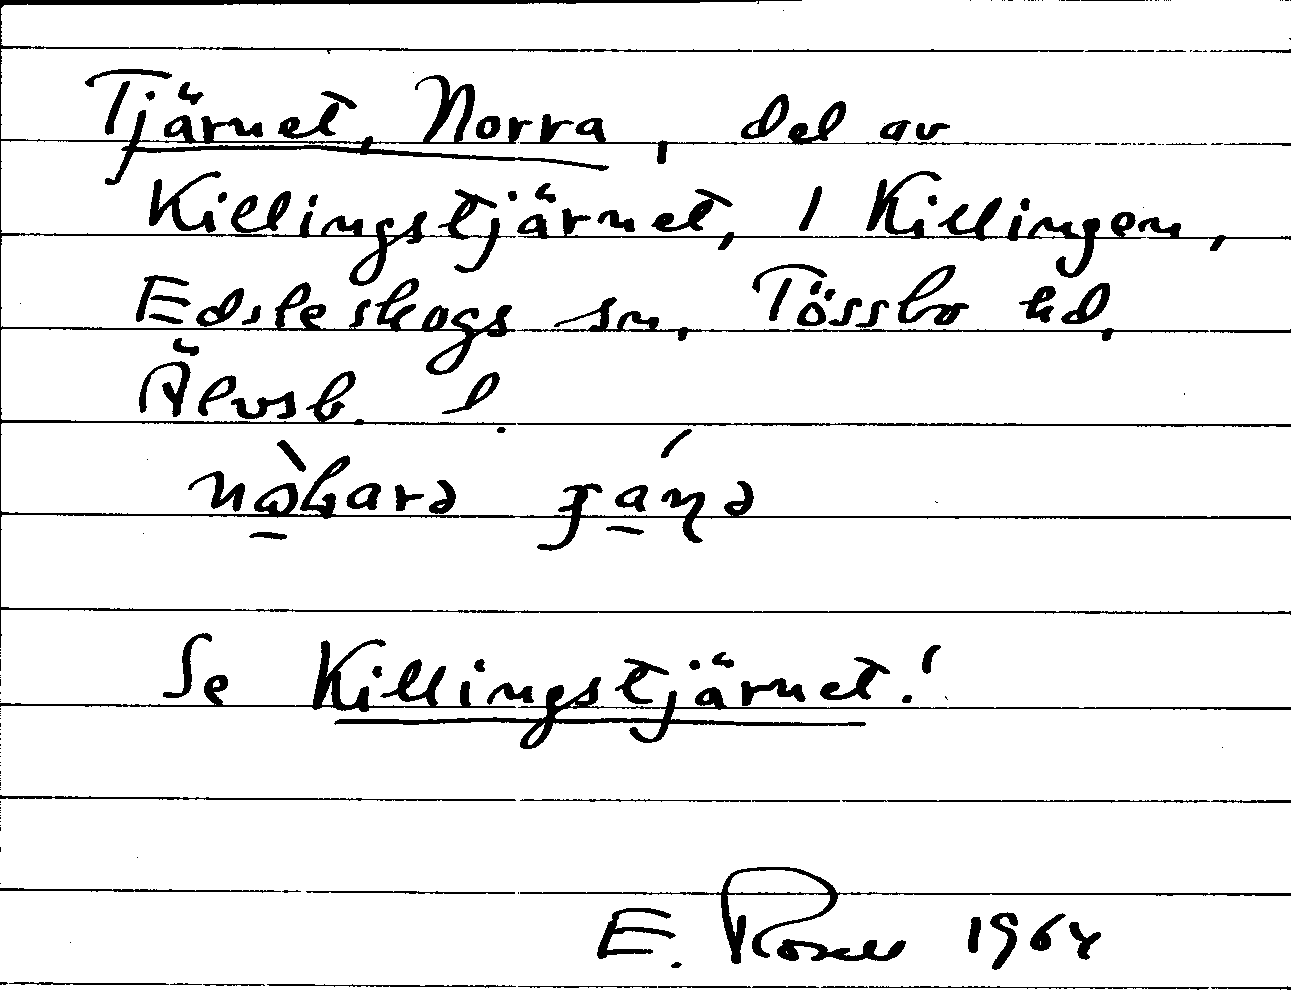 Tjärnet, Norra, del av
Killingstjärnet, 1 Killingen,
Edsleskogs sn, Tössbo hd,
Älvsb. l.
Se Killingstjärnet!
E. Rosell 1964